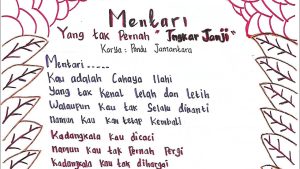 Mentari
Yang tak Pernah "Ingkar Janji"
Karya : Pandu Jamantara
Mentari.....
Kau adalah Cahaya Ilahi
Yang tak kenal lelah dan letih
Walaupun kau tak Selalu dinanti
namun kau kau tetap kembali
Kadangkala kau dicaci
namun kau tak pernah pergi
Kadangkala kau tak dihargai